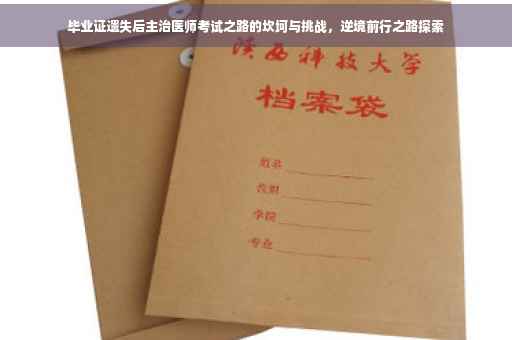 毕业证遗失后主治医师考试之路的坎坷与挑战，逆境前行之路探索
陕西科技大学
档案袋
姓名
类别
学院
专业